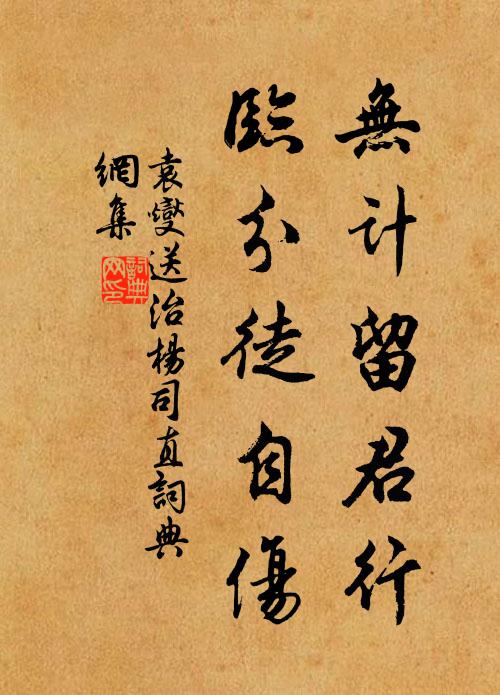 無計留君行
臨分徒自傷
袁燮送治楊司直詞典
網集
詞典
网印